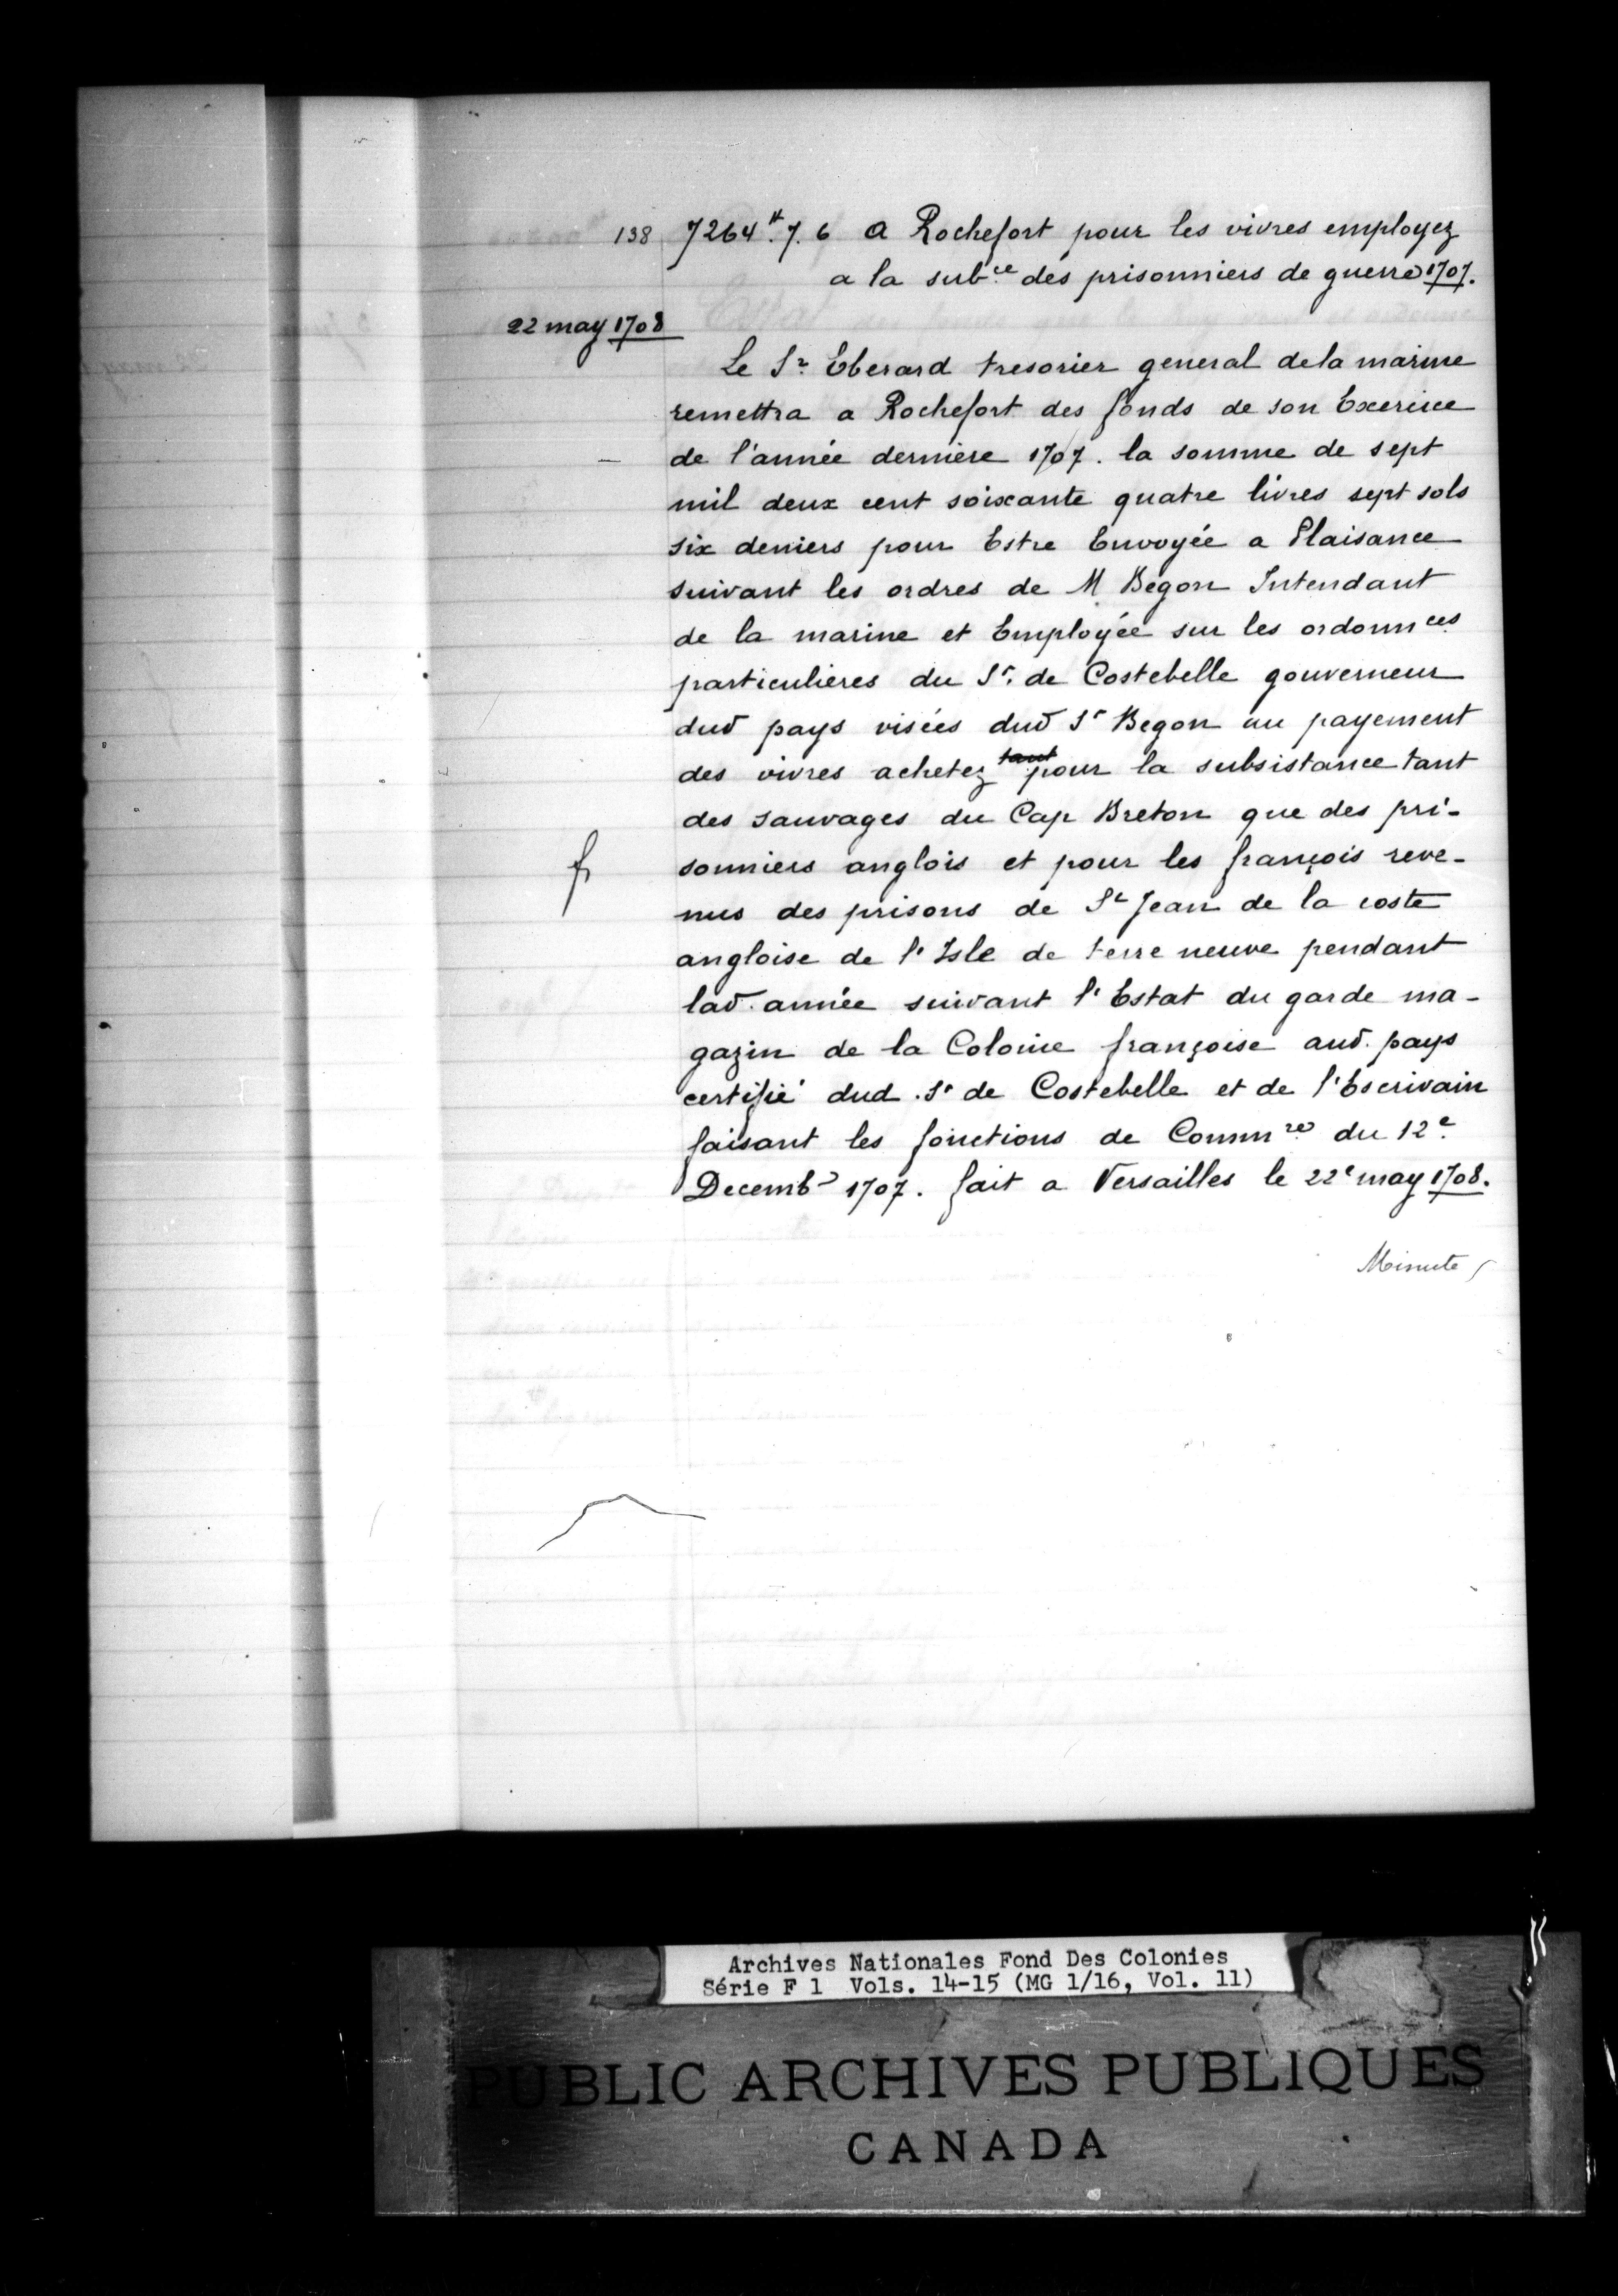 138 7264ᵗᵗ.7.6 a Rochefort pour les vivres employez
a la subce des prisonniers de guerre 1707.
22 may 1708
Le Sr Eberard tresorier general dela marine
remettra a Rochefort des fonds de son Exercice
de l'année derniere 1707. la somme de sept
mil deux cent soixante quatre livres sept sols
six deniers pour Estre Envoyée a Plaisance
suivant les ordres de M Begon Intendant
de la marine et Employée sur les ordonnces
particulieres du Sr. de Costebelle gouverneur
dud pays visées dud Sr Begon au payement
des vivres achetez tant pour la subsistance tant
des sauvages du Cap Breton que des pri-
sonniers anglois et pour les françois reve-
nus des prisons de St Jean de la coste
angloise de l'Isle de terre neuve pendant
lad. année suivant l'Estat du garde ma-
gazin de la Colonie françoise aud. pays
certifié dud. Sr de Costebelle et de l'Escrivain
faisant les fonctions de Commre du 12e
Decemb 1707. fait a Versailles le 22e may 1708.
Minute
Archives Nationales Fond Des Colonies
Série F 1 Vols. 14-15 (MG 1/16, Vol. 11)
PUBLIC ARCHIVES PUBLIQUES
CANADA